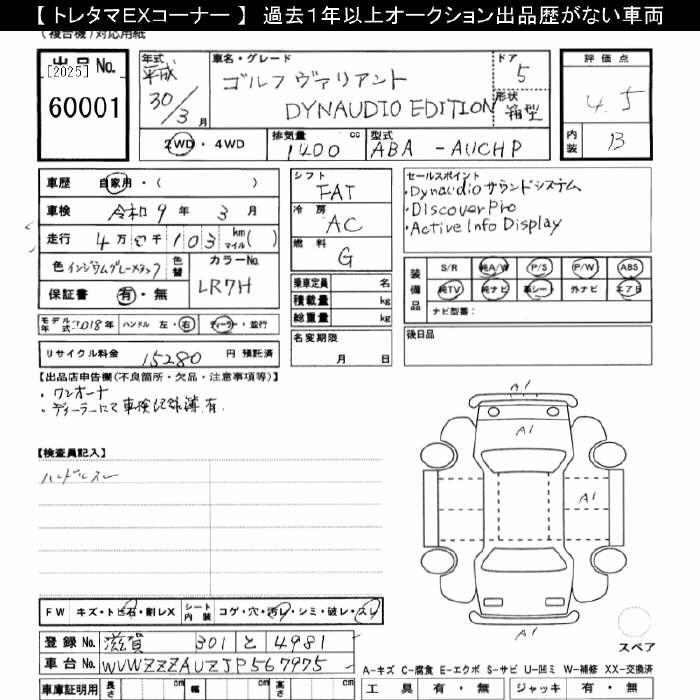 【 トレタマEXコーナー 】 過去1年以上オークション出品歴がない車両
(複合機)対応用紙
出品 No.
[2025]
60001
年式
平成
30/3月
車名・グレード
ゴルフ ヴァリアント
DYNAUDIO EDITION
ドア
5
形状
箱型
評価点
4.5
内装
B
2WD・4WD
排気量
1400 cc
型式
ABA - AUCHP
車歴 自家用・( )
車検 令和9年 3月
走行 4万 千103 km マイル( )
色 インジウムグレーメタリック
色替
カラーNo.
LR7H
保証書 有・無
シフト
FAT
冷房
AC
燃料
G
セールスポイント
・Dynaudioサウンドシステム
・Discover Pro
・Active Info Display
乗車定員 名
積載量 kg
総重量 kg
装備品
S/R 純A/W P/S P/W ABS
純TV 純ナビ 革シート 外ナビ エアB
ナビ型番:
モデル年式 2018年 ハンドル 左・右 ディーラー・並行
名変期限
月 日
後日品
リサイクル料金 15280 円 預託済
【出品店申告欄(不良箇所・欠品・注意事項等)】
・ワンオーナ
・ディーラーにて車検記録簿有.
【検査員記入】
ハンドルスレ
A1
A1
A1
スペア
FW キズ・トビ石・割レX
シート内装 コゲ・穴・汚レ・シミ・破レ・スレ
登録 No. 滋賀 301 と 4981
車台 No. WVWZZZAUZJP567975
A-キズ C-腐食 E-エクボ S-サビ U-凹ミ W-補修 XX-交換済
車庫証明用 長さ cm 幅 cm 高さ cm
工具 有・無 ジャッキ 有・無